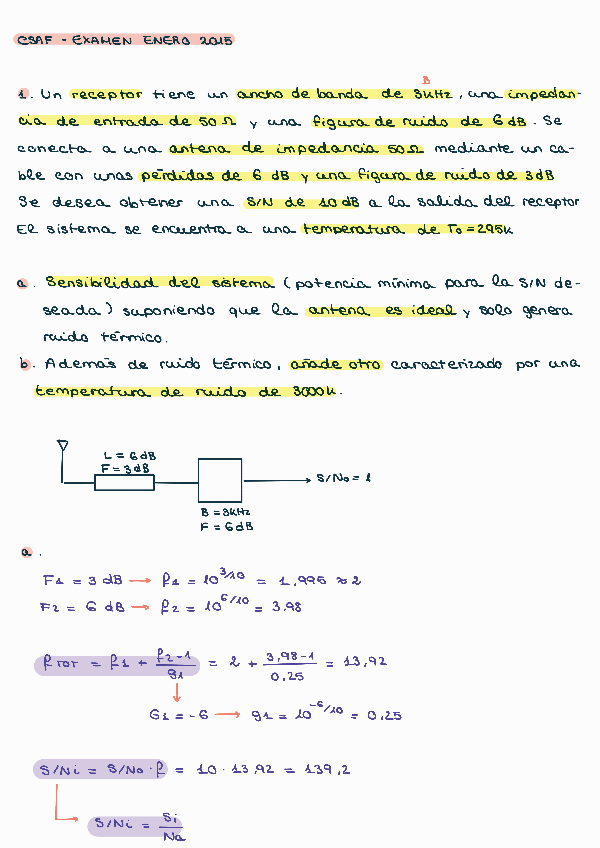 CSAF - EXAMEN ENERO 2015
B
1. Un receptor tiene un ancho de banda de 3kHz, una impedan-
cia de entrada de 50 Ω y una figura de ruido de 6 dB. Se
conecta a una antena de impedancia 50Ω mediante un ca-
ble con unas pérdidas de 6 dB y una figura de ruido de 3dB
Se desea obtener una S/N de 10 dB a la salida del receptor
El sistema se encuentra a una temperatura de T₀ = 295K
a. Sensibilidad del sistema (potencia mínima para la S/N de-
seada) suponiendo que la antena es ideal y solo genera
ruido térmico.
b. Además de ruido térmico, añade otro caracterizado por una
temperatura de ruido de 3000K.
L = 6 dB
F = 3 dB
S/No = 1
B = 3kHz
F = 6dB
a.
F1 = 3 dB → f1 = 10^3/10 = 1,995 ≈ 2
F2 = 6 dB → f2 = 10^6/10 = 3.98
fTOT = f1 + (f2-1)/g1 = 2 + (3,98-1)/0,25 = 13,92
G1 = -6 → g1 = 10^-6/10 = 0,25
S/Ni = S/No · f = 10 · 13,92 = 139,2
S/Ni = Si/Na